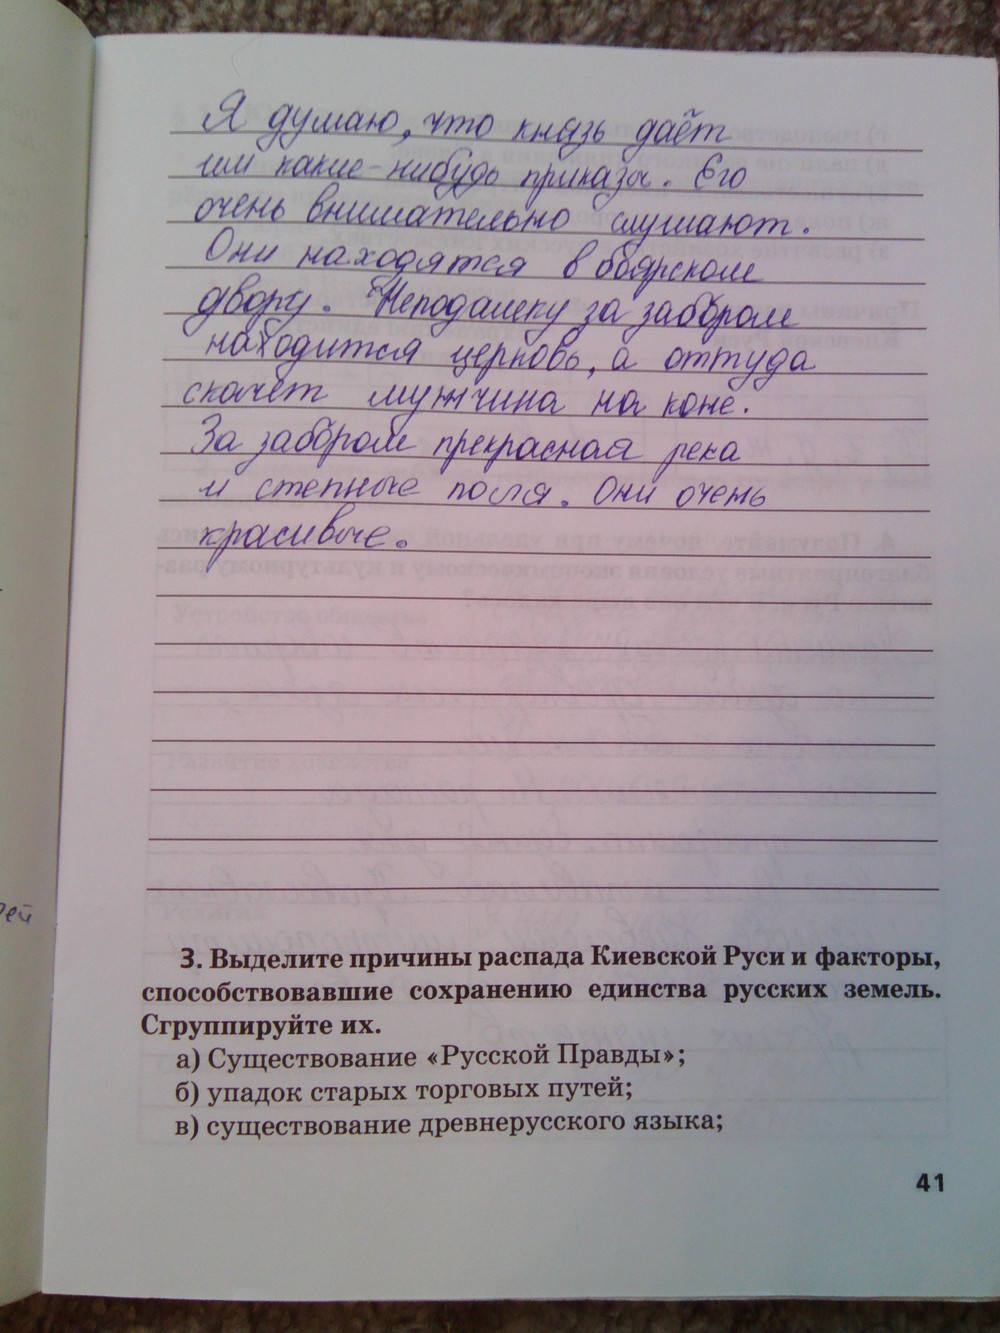 Я думаю, что князь даёт
им какие-нибудь приказы. Его
очень внимательно слушают.
Они находятся в боярском
двору. Неподалеку за забором
находится церковь, а оттуда
скачет мужчина на коне.
За забором прекрасная река
и степные поля. Они очень
красивые.
3. Выделите причины распада Киевской Руси и факторы,
способствовавшие сохранению единства русских земель.
Сгруппируйте их.
а) Существование «Русской Правды»;
б) упадок старых торговых путей;
в) существование древнерусского языка;
41